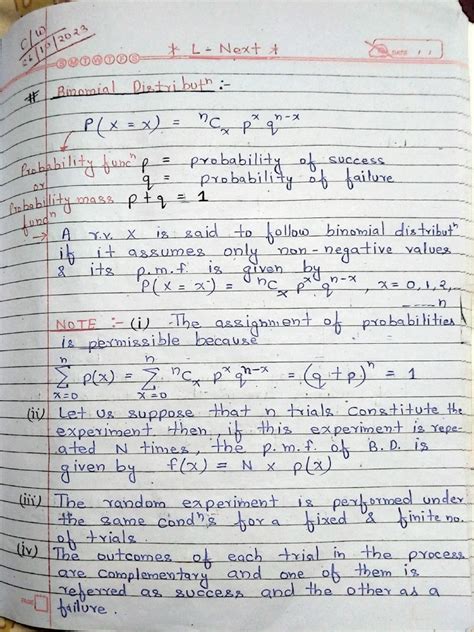 C/W
26/10/2023
* L - Next *
DATE
S M T W T F S
# Binomial Distributⁿ :-
P(X = x) = ⁿCₓ pˣ qⁿ⁻ˣ
Probability funcⁿ
or
Probability mass
funcⁿ
p = probability of success
q = probability of failure
p + q = 1
→ A r.v. X is said to follow binomial distributⁿ
if it assumes only non-negative values
& its p.m.f is given by
P(X = x) = ⁿCₓ pˣ qⁿ⁻ˣ , x = 0, 1, 2, ---- n
NOTE :- (i) The assignment of probabilities
is permissible because
∑ₓ₌₀ⁿ p(x) = ∑ₓ₌₀ⁿ ⁿCₓ pˣ qⁿ⁻ˣ = (q + p)ⁿ = 1
(ii) Let us suppose that n trials constitute the
experiment then if this experiment is repe-
ated N times, the p.m.f. of B.D. is
given by f(x) = N × p(x)
(iii) The random experiment is performed under
the same condⁿs for a fixed & finite no.
of trials.
(iv) The outcomes of each trial in the process
are complementary and one of them is
referred as success and the other as a
failure.
PAGE